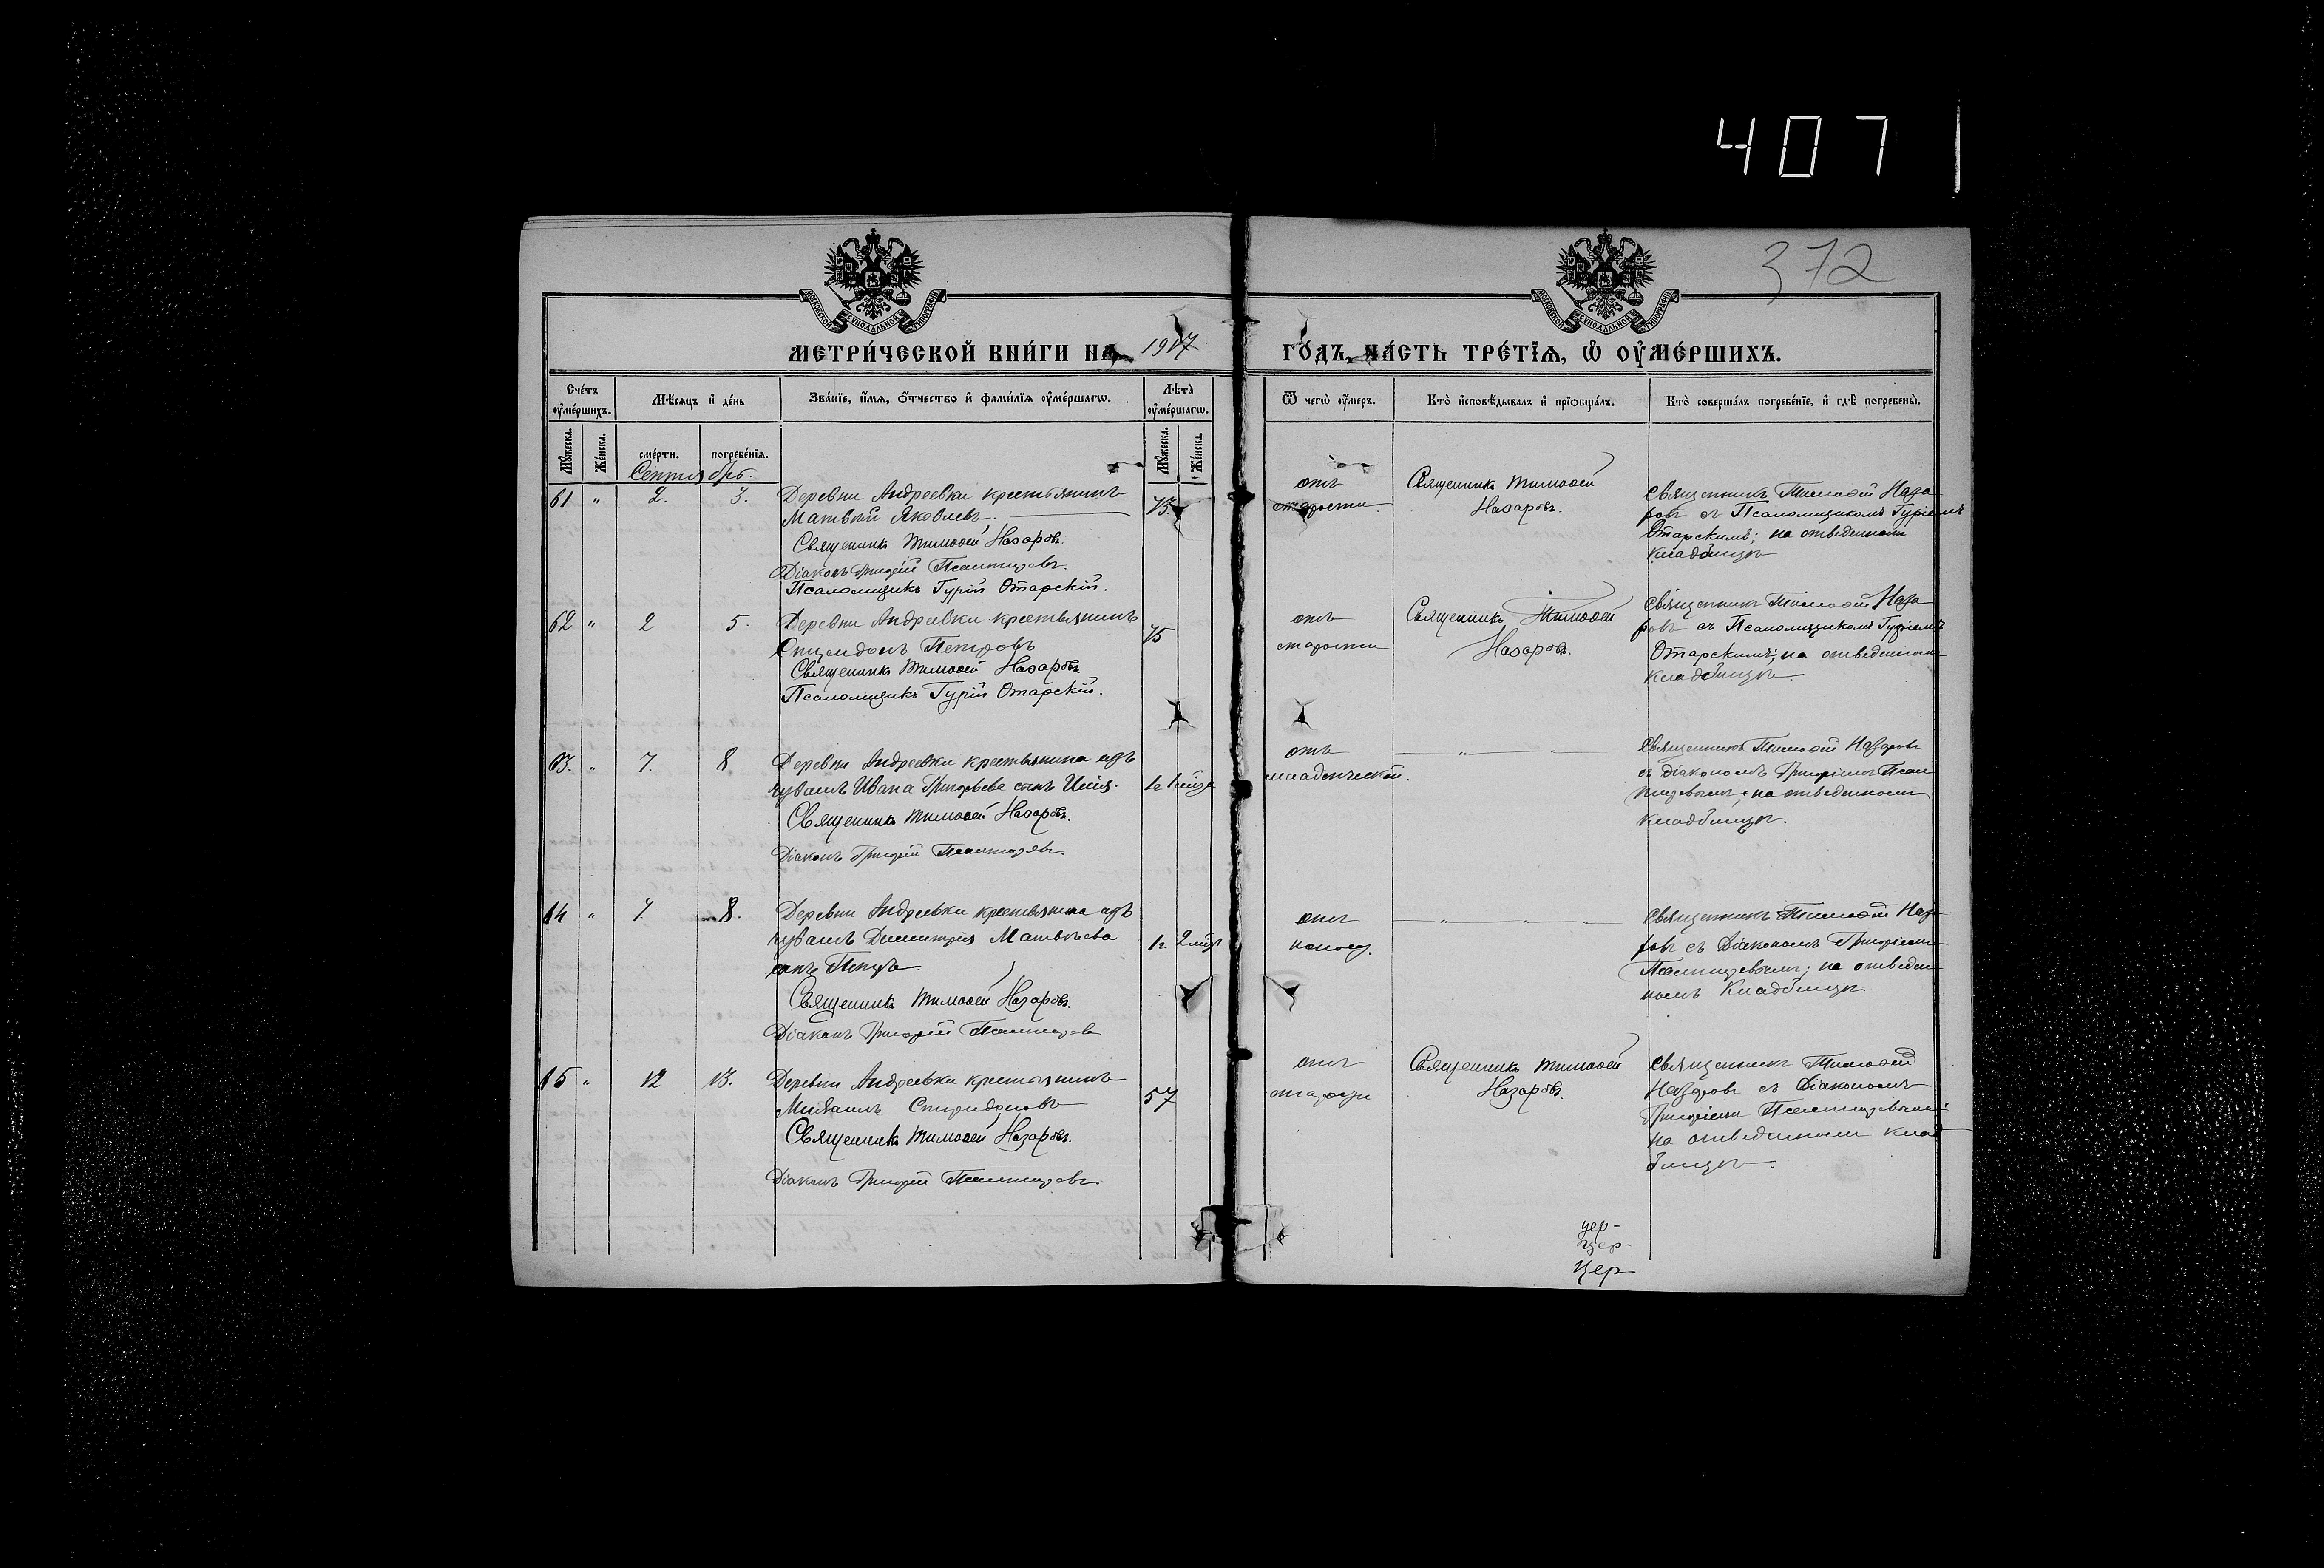 407
372
МОСКОВСКОЙ СУНОДАЛЬНОЙ ТИПОГРАФІИ
МОСКОВСКОЙ СУНОДАЛЬНОЙ ТИПОГРАФІИ
МЕТРИ́ЧЕСКОЙ КНИ́ГИ НА 1917 ГО́ДЪ, ЧА́СТЬ ТРЕ́ТЇѦ, Ѡ ОУМЕ́РШИХЪ.
Сче́тъ оуме́ршихъ.
Мѣ́сѧцъ и҆ де́нь
Зва́нїе, и҆́мѧ, ѻ҆́тчество и҆ фами́лїѧ оуме́ршагѡ.
Лѣ́та оуме́ршагѡ.
Ѿ чегѡ̀ оу́меръ.
Кто̀ и҆сповѣ́дывалъ и҆ прїобща́лъ.
Кто̀ соверша́лъ погребе́нїе, и҆ гдѣ̀ погребены̀.
Мꙋ́жеска.
Же́нска.
сме́рти.
погребе́нїѧ.
Мꙋ́жеска.
Же́нска.
Сентябрь.
61 " 2. 3. Деревни Андреевки крестьянинъ
Матвѣй Яковлевъ.
73.
Священникъ Тимоѳей Назаровъ.
Діаконъ Григорій Псалтыревъ.
Псаломщикъ Гурій Отарскій.
отъ
старости.
Священникъ Тимоѳей
Назаровъ.
Священникъ Тимоѳей Наза
ровъ съ Псаломщикомъ Гуріемъ
Отарскимъ; на отведенномъ
кладбищѣ
62 " 2 5. Деревни Андреевки крестьянинъ
Спиридонъ Петровъ
75
Священникъ Тимоѳей Назаровъ.
Псаломщикъ Гурій Отарскій.
отъ
старости
Священникъ Тимоѳей
Назаровъ.
Священникъ Тимоѳей Наза
ровъ съ Псаломщикомъ Гуріемъ
Отарскимъ; на отведенномъ
кладбищѣ.
63. " 7. 8 Деревни Андреевки крестьянина изъ
чувашъ Ивана Григорьева сынъ Илія.
Священникъ Тимоѳей Назаровъ.
Діаконъ Григорій Псалтыревъ.
отъ
младенческой.
Священникъ Тимоѳей Назаровъ
съ діакономъ Григоріемъ Псал
тыревымъ; на отведенномъ
кладбищѣ.
64 " 7. 8. Деревни Андреевки крестьянина изъ
чувашъ Димитрія Матвѣева
сынъ Петръ.
Священникъ Тимоѳей Назаровъ.
Діаконъ Григорій Псалтыревъ
отъ
поносу.
Священникъ Тимоѳей Наза
ровъ съ Діакономъ Григоріемъ
Псалтыревымъ; на отведен
номъ кладбищѣ
65 " 12 13. Деревни Андреевки крестьянинъ
Михаилъ Спиридоновъ
57
Священникъ Тимоѳей Назаровъ.
Діаконъ Григорій Псалтыревъ.
отъ
Священникъ Тимоѳей
Назаровъ.
Священникъ Тимоѳей
Назаровъ съ Діакономъ
Григоріемъ Псалтыревымъ;
на отведенномъ клад
бищѣ.
цер-
цер-
цер